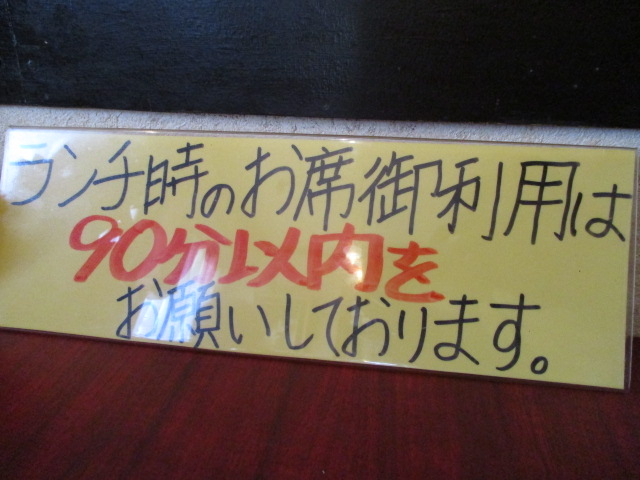 ランチ時のお席御利用は
90分以内を
お願いしております。